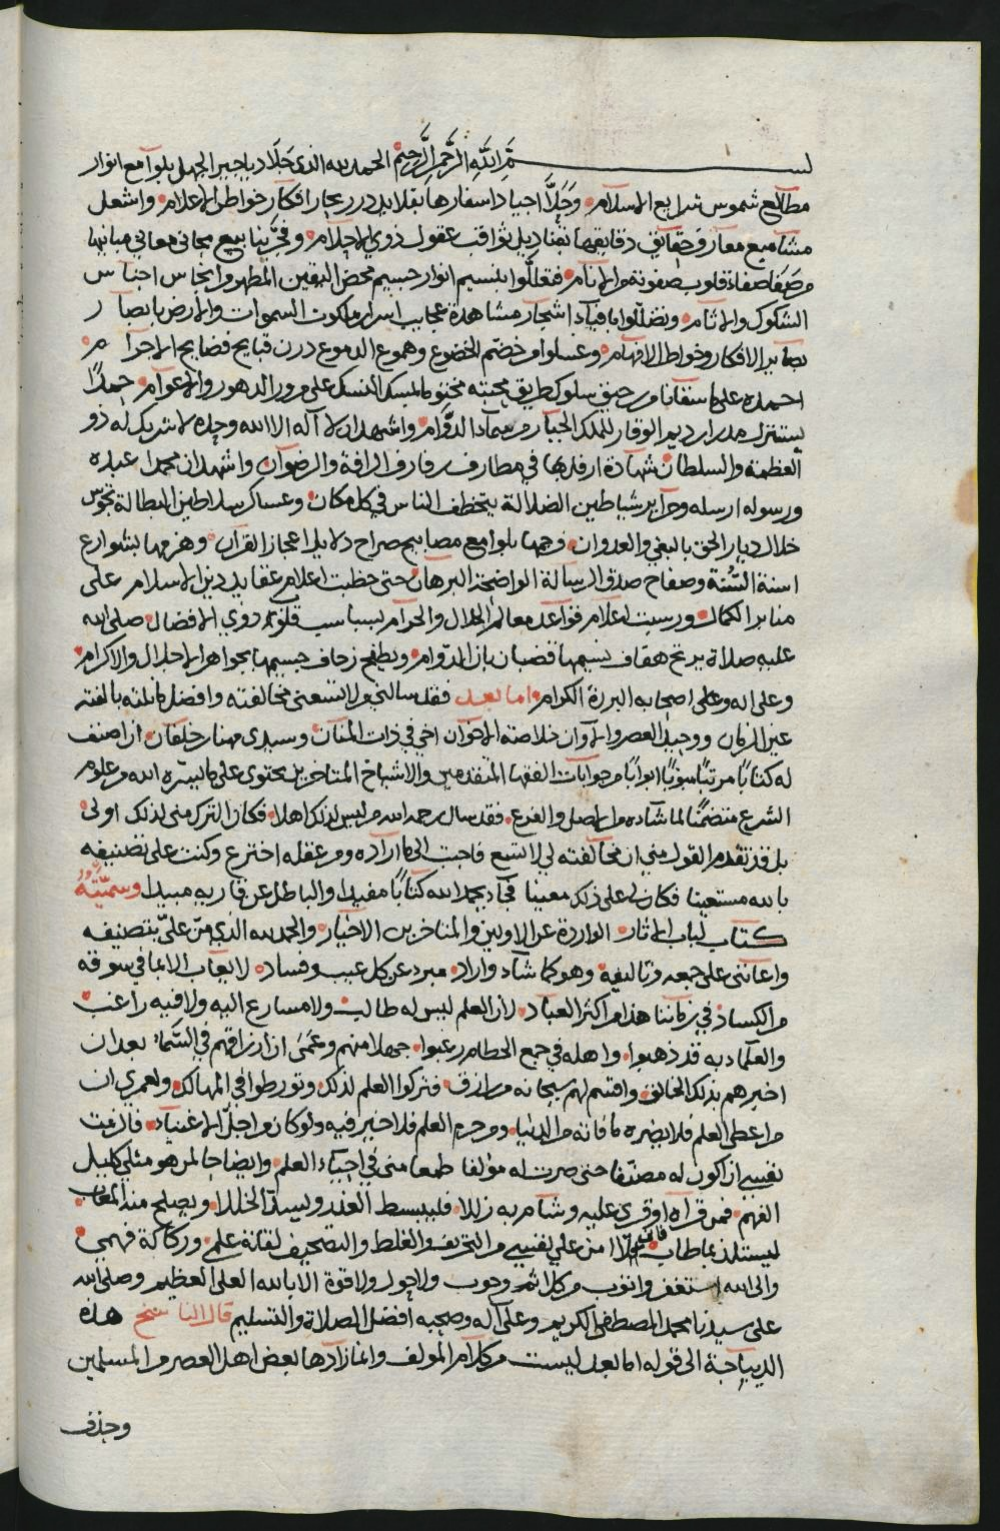 بسم الله الرحمن الرحيم الحمد لله الذي جلا دياجير الجهل بلوامع انوار
مطالع شموس شرايع الاسلام وحلا اجياد اسفارها بقلايد درر بحار افكار خواطر الاعلام واشعل
مشاميع معارف حقايق دقايقها بقناديل ثواقب عقول ذوي الاحلام وفجر ينابيع مجاني معاني مبانيها
من صفا صفاء قلوب صفوته من الانام فتعللوا بنسيم انوار جسيم محض اليقين المطهر من انجاس اجناس
الشكوك والاثام وتضللوا بافياء اشجار مشاهدة عجايب اسرار ملكوت السموات والارض بابصار
بصاير الافكار وخواطر الافهام وغسلوا من خضم الخضوع وهموع الدموع درن قبايح فضايح الاجرام
احمده على ما سقانا من رحيق سلوك طريق محبته مختوما بمسك النسك على مرور الدهور والاعوام حمدا
يستنزل مدرار ديم الوقار للملك الجبار من سماء الدوام واشهد ان لا اله الا الله وحده لا شريك له ذو
العظمة والسلطان شهادة ارفل بها في مطارف رفارف الرافة والرضوان واشهد ان محمدا عبده
ورسوله ارسله وجراير شياطين الضلالة يتخطف الناس في كل مكان وعساكر سلاطين البطالة تجوس
خلال ديار الحق بالبغي والعدوان وحمها بلوامع مصابيح صراح دلايل اعجاز القران وهزمها بشوارع
اسنة السنة وصفاح صدق الرسالة الواضحة البرهان حتى خطبت اعلام عقايد دين الاسلام على
منابر الكمال ورسيت اعلام قواعد معالم الحلال والحرام بسباسب قلوب ذوي الافضال صلى الله
عليه صلاة يرنح هفاف نسيمها قضبان بان الدوام ويطفح زحاف جسيمها بجواهر الاجلال والاكرام
وعلى اله وعلى اصحابه البررة الكرام اما بعد فقد سالني من لا تسعني مخالفته وافضل ما نلته بالفته
عين الزمان ووحيد العصر والاوان خلاصة الاخوان اخي في ذات المنان وسيدي مهنا بن خلفان ان اصنف
له كتابا مرتبا مبوبا ابوابا من جوابات الفقها المتقدمين والاشياخ المتاخرين يحتوي على ما يسره الله من علوم
الشرع متضمنا لما شاده من الاصل والفرع فقد سال رحمه الله من ليس لذلك اهلا فكان الترك مني لذلك اولى
بل قد تقدم القول مني ان مخالفته لي لا تسع فاجبت الى ما اراده ومن عقله اخترع وكنت على تصنيفه
بالله مستعينا فكان لي على ذلك معينا فجاء بحمد الله كتابا مفيدا والباطل عن قاريه مبيدا وسميته
كتاب لباب الاثار الواردة عن الاولين والمتاخرين الاخيار والحمد لله الذي من علي بتصنيفه
واعانني على جمعه وتاليفه وهو كما شاء واراد مبرد عن كل عيب وفساد لا يعاب الا بما في سوقه
من الكساد في زماننا هذا من اكثر العباد لان العلم ليس له طالب ولا مسارع اليه ولا فيه راغب
والعلماء به قد ذهبوا واهله في جمع الحطام رغبوا جهلا منهم وعمى ان ارزاقهم في السماء بعد ان
اخبرهم بذلك الخالق واقسم لهم سبحانه من رازق فتركوا العلم لذلك وتورطوا في المهالك ولعمري ان
من اعطي العلم فلا يضره ما فاته من الدنيا ومن حرم العلم فلا خير فيه ولو كان من اجل الاغنياء فالزمت
نفسي ان اكون له مصنفا حتى صرت له مؤلفا طمعا مني في احياء العلم وايضاحا لمن هو مثلي كليل
الفهم فمن قراه او قري عليه وشام به زللا فليبسط العذر وليسد الخللا ويصلح منه المعاب
ليستلذ بما طاب فانني لا امن على نفسي من التحريف والغلط والتصحيف لقلة علمي وركاكة فهمي
والى الله استغفر واتوب من كل اثم وحوب ولا حول ولا قوة الا بالله العلي العظيم وصلى الله
على سيدنا محمد المصطفى الكريم وعلى آله وصحبه افضل الصلاة والتسليم قال الناسخ هذه
الديباجة الى قوله اما بعد ليست من كلام المولف وانما زادها بعض اهل العصر من المسلمين
وحذف